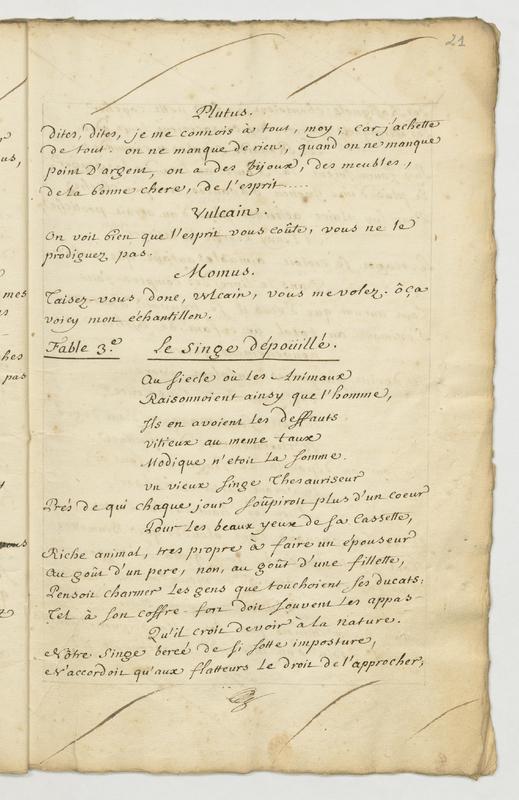 21
Plutus.
dites, dites, je me connois à tout, moy ; car j'achette
de tout. on ne manque de rien, quand on ne manque
point D'argent, on a des Bijoux, des meubles,
de la bonne chere, de l'esprit.....
Vulcain.
On voit bien que l'esprit vous coûte, vous ne le
prodiguez pas.
Momus.
Taisez-vous donc, vulcain, vous me volez. ôça
voicy mon echantillon.
Fable 3.e Le Singe dépouillé.
Au siecle où les Animaux
Raisonnoient ainsy que l'homme,
Ils en avoient les deffauts
vitieux au meme taux
Modique n'etoit La somme.
un vieux singe Thesauriseur
Prés de qui chaque jour soûpiroit plus d'un coeur
Pour les beaux yeux de sa Cassette,
Riche animal, tres propre à faire un epouseur
Au goût d'un pere, non, au goût d'une fillette,
Pensoit charmer Les gens que touchoient ses ducats;
Tel à son coffre-fort doit souvent Les appas
Qu'il croit devoir à la nature.
Nôtre singe bercé de si sotte imposture,
N'accordoit qu'aux flatteurs Le droit de l'approcher,
mes
hes
pas